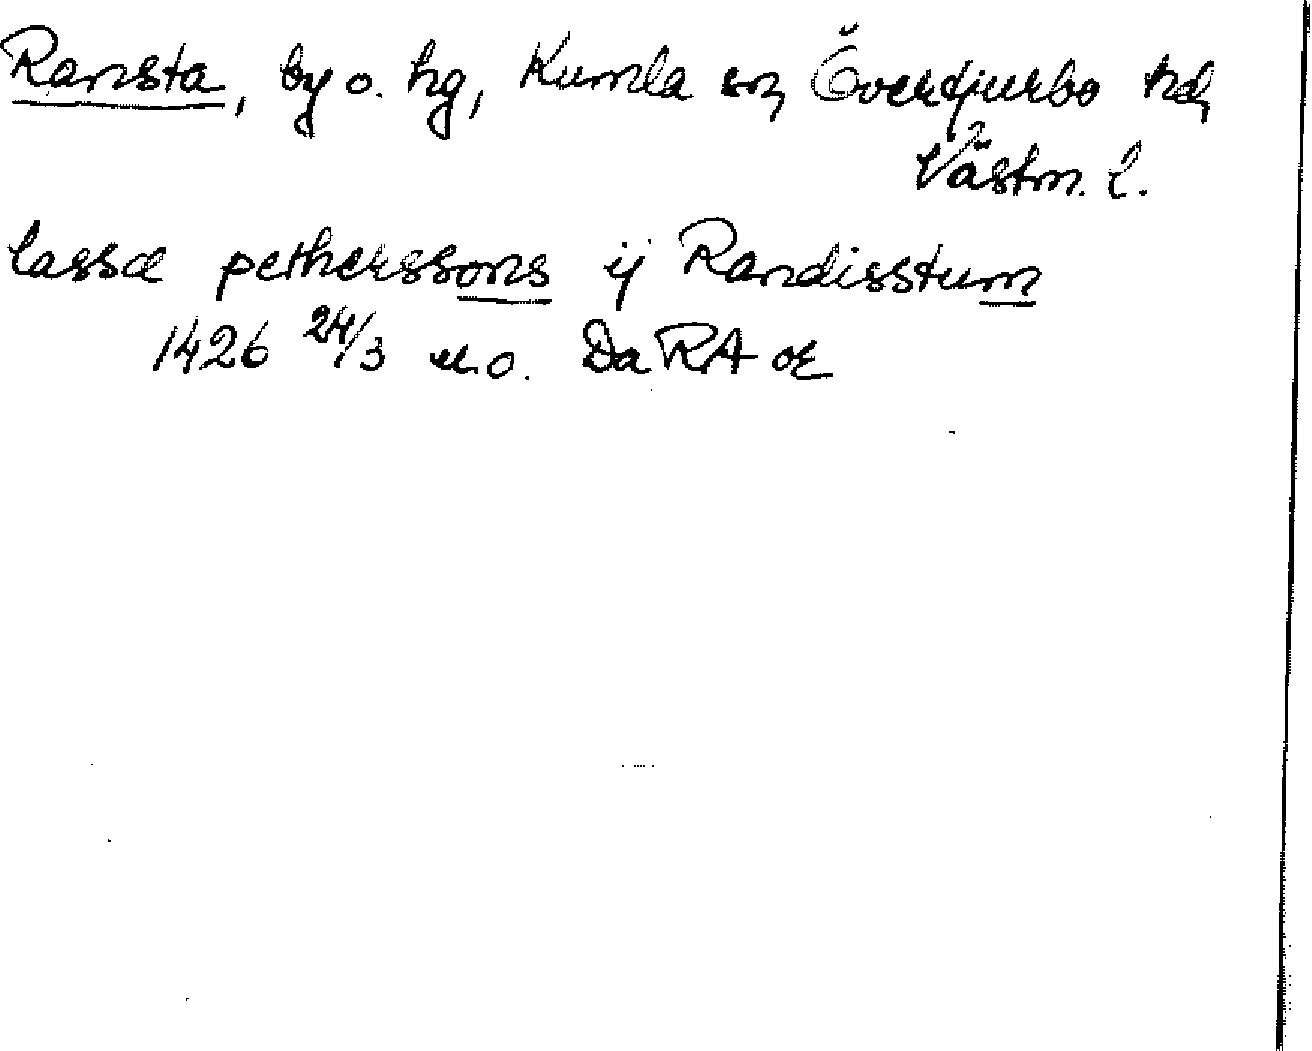 Ransta, by o. hg, Kumla sn, Övertjurbo hd,
Västm. l.
lassæ pethersssons ij Randisstum
1426 24/3 u.o. Da RA or